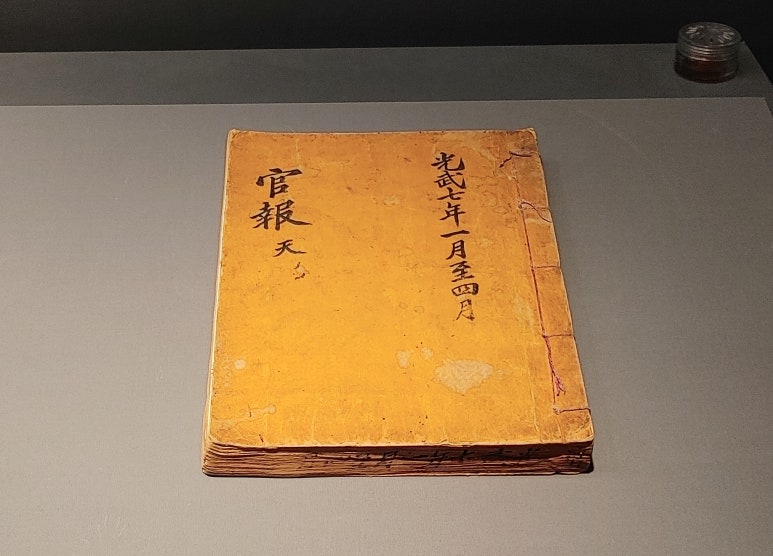 光武七年一月至四月
官報 天